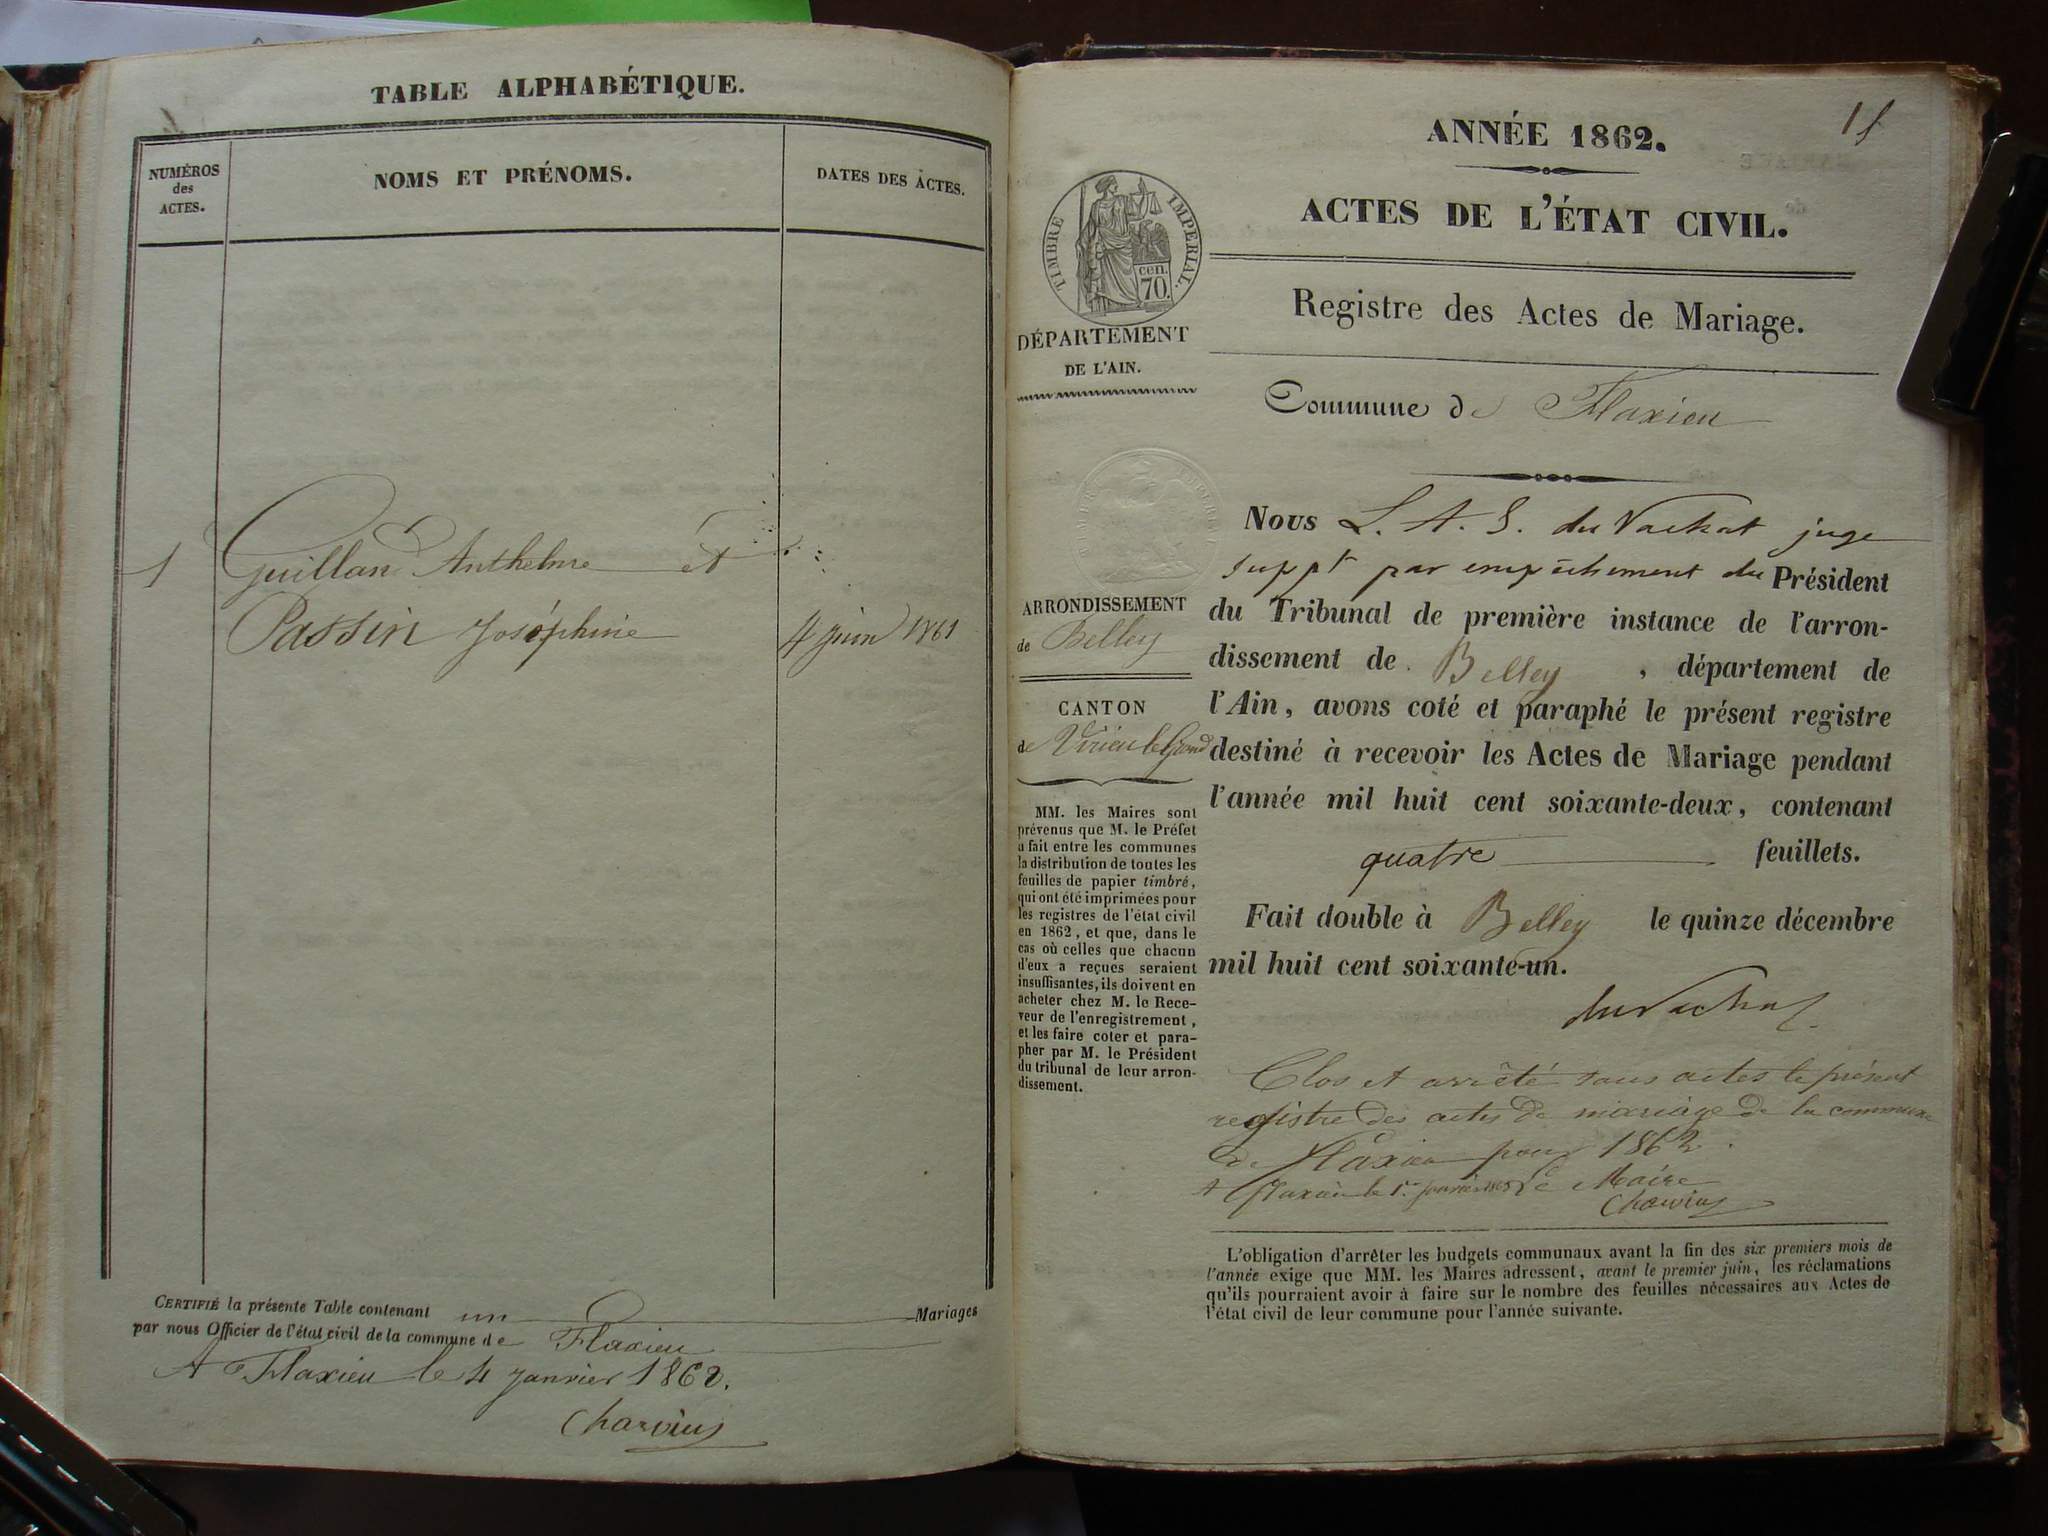 TABLE ALPHABÉTIQUE.
NUMÉROS
des
ACTES.
NOMS ET PRÉNOMS.
DATES DES ACTES.
1 Guilland Anthelme et
Passin Joséphine 4 juin 1861
CERTIFIÉ la présente Table contenant un Mariages
par nous Officier de l'état civil de la commune de Flaxieu
A Flaxieu le 4 janvier 1862.
Charvin
1
ANNÉE 1862.
ACTES DE L'ÉTAT CIVIL.
Registre des Actes de Mariage.
Commune de Flaxieu
TIMBRE IMPERIAL.
cen.
70.
DÉPARTEMENT
DE L'AIN.
ARRONDISSEMENT
de Belley
CANTON
de Virieu le Grand
MM. les Maires sont
prévenus que M. le Préfet
a fait entre les communes
la distribution de toutes les
feuilles de papier timbré,
qui ont été imprimées pour
les registres de l'état civil
en 1862, et que, dans le
cas où celles que chacun
d'eux a reçues seraient
insuffisantes, ils doivent en
acheter chez M. le Rece-
veur de l'enregistrement,
et les faire coter et para-
pher par M. le Président
du tribunal de leur arron-
dissement.
Nous L. A. S. du Vachat juge
suppt par empêchement du Président
du Tribunal de première instance de l'arron-
dissement de Belley, département de
l'Ain, avons coté et paraphé le présent registre
destiné à recevoir les Actes de Mariage pendant
l'année mil huit cent soixante-deux, contenant
quatre feuillets.
Fait double à Belley le quinze décembre
mil huit cent soixante-un.
du Vachat
Clos et arrêté sans actes le présent
registre des actes de mariage de la commune
de Flaxieu pour 1862.
A Flaxieu le 1er janvier Le Maire
Charvin
L'obligation d'arrêter les budgets communaux avant la fin des six premiers mois de
l'année exige que MM. les Maires adressent, avant le premier juin, les réclamations
qu'ils pourraient avoir à faire sur le nombre des feuilles nécessaires aux Actes de
l'état civil de leur commune pour l'année suivante.